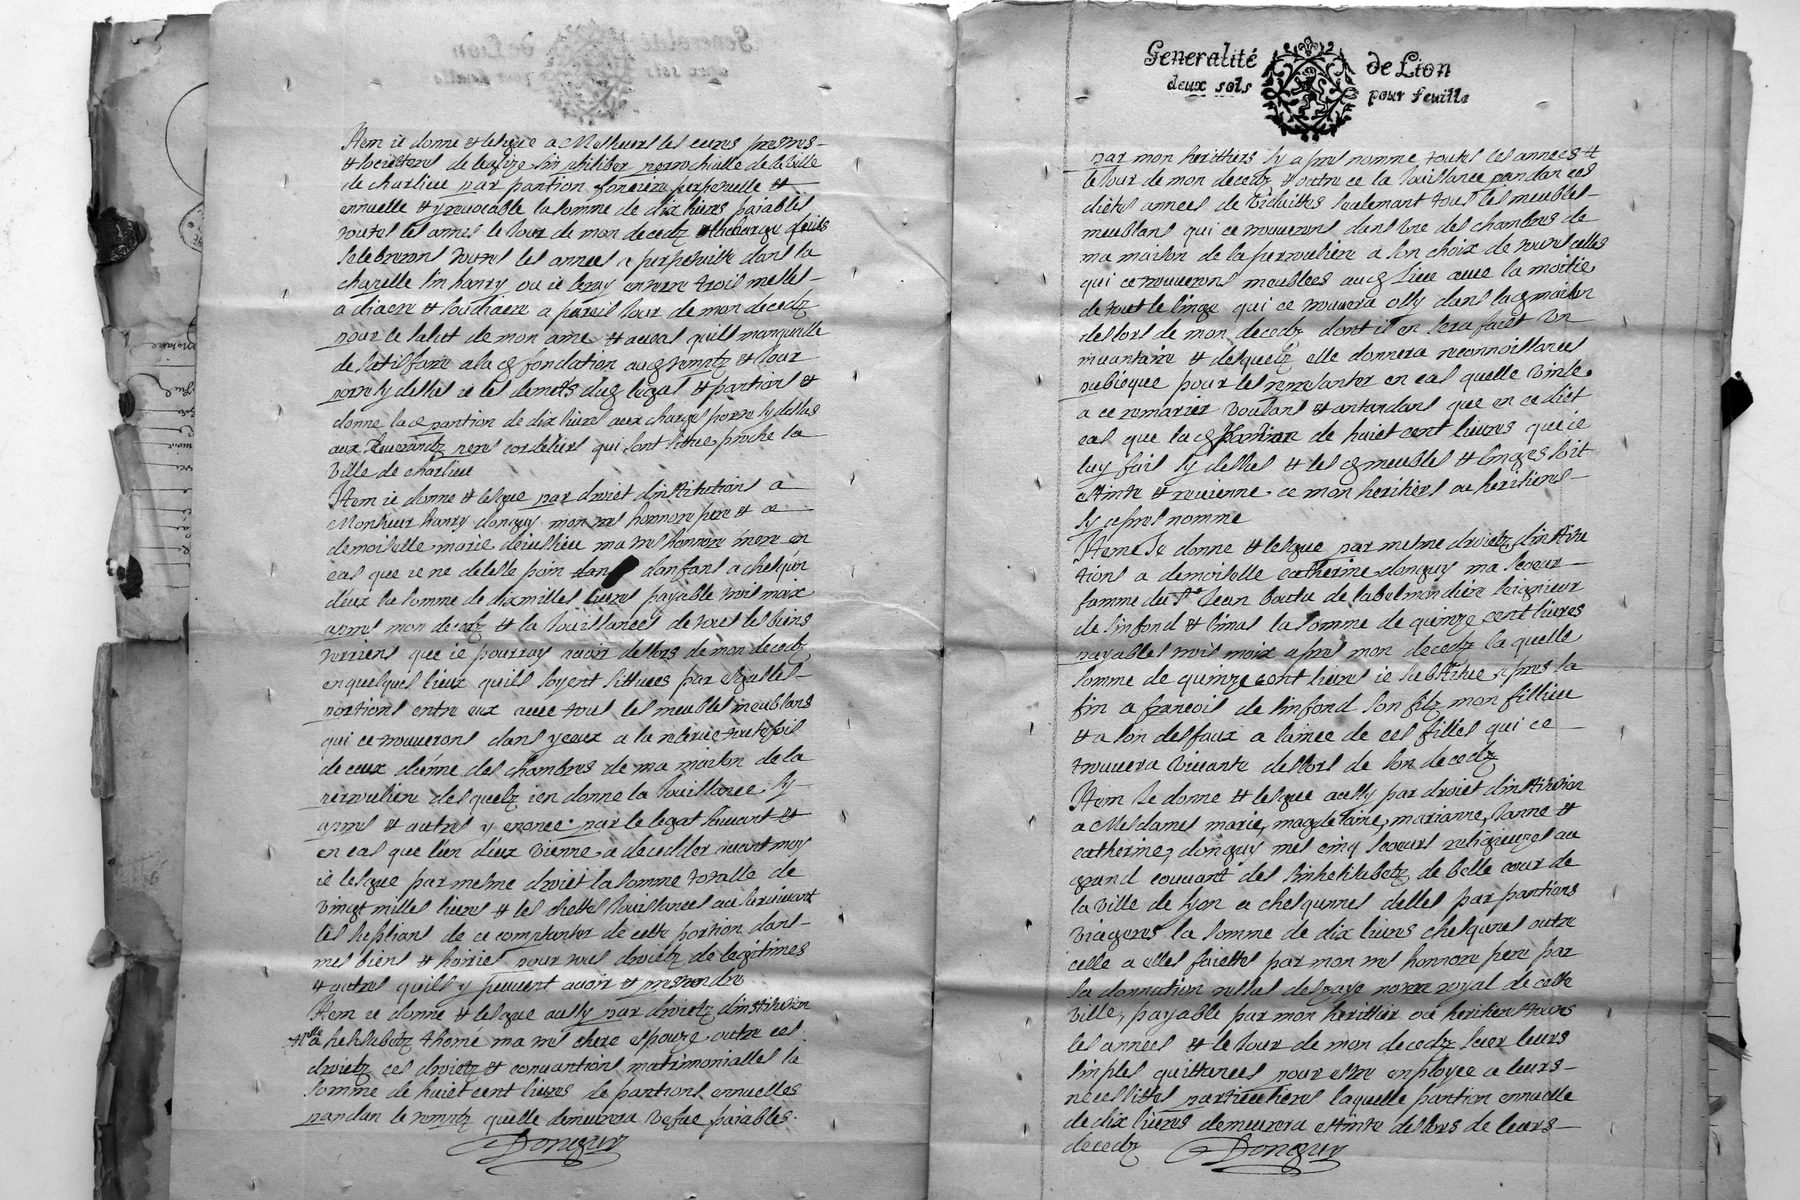 Item ie donne et legue a Messieurs les cures prestres
et societteres de leglize sin philiber perrochialle de la ville
de charlieu par pantion fonciere perpetuelle et
ennuelle et yrevocable la somme de dix livres paiables
toutes les annes le iour de mon decedz
selebreront toutes les annees a perpetuitte dans la
chapelle sin hanry ou ie seray enterre trois messes
a diacre et soudiacre a pareil iour de mon decedz
pour le salut de mon ame et au cas quils manquasse
de satisfaire a la fondation
ie les demets legat et pantions et
donne la pantion de dix livres aux charges
aux Reverandz peres cordeliers qui sont sittue proche la
ville de charlieu
Item ie donne et legue par droict dinstitutions a
Monsieur hanry donguy mon tres honnore pere et a
demoiselle marie deiussieu ma tres honnore mere en
cas que ie ne delesse poin danfans a chesqun
deux la somme de dix milles livres payable trois moix
apres mon decedz et la iouissances de tout les biens
terriens que ie pourray avoir de lors de mon decedz
en quelques lieux quils soyent sittues par esgalles
portions entre eux avec tous les meubles meublans
qui ce trouverons dans yceux a la reserve toutefois
de ceux dune des chambres de ma maison de la
perrouliere desquelz ien donne la iouissance sy
apres et autres y enonce par le legat suivant et
en cas que lun deux vienne a deceder avant moy
ie legue par mesme droict la somme totalle de
vingt milles livres et les dittes iouissances au survivant
les de ce contanter de cette portion dans
mes biens et hoiries pour tous droictz de legitimes
et autres quils y peuvent avoir et pretendre
Item ie donne et legue aussy par droictz dinstitution
a helisabetz thomé ma tres chere espouze outre ces
droictz ces droictz et convantions matrimonialles la
somme de huict cent livres de pantions annuelles
pandan le temptz quelle demeurera vefue paiables
Donguy
Generalité de Lion
deux sols pour feuille
par mon herittiers sy apres nomme toutes les annees et
le iour de mon decedz et outre ce la iouissance pandan ces
dictes annees de viduittes seulemant tous les meubles
meublans qui ce trouverons dans une des chambres de
ma maison de la perrouliere a son choix de toutes celles
qui ce trouverons meublees lieu avec la moitie
de tout le linge qui ce trouvera issy dans maison
de lors de mon decedz dont il en sera faict un
invantaire et desquelz elle donnera reconnoissances
publicque pour les representer en cas quelle vinse
a ce remarier voulans et antandans que en ce dict
cas que la pantion de huict cent livres que ie
luy fais sy dessus et les meubles et linges soit
estinte et revienne a mon heritiers ou heritiers
sy apres nomme
Item Je donne et legue par mesme droictz dinstitu
tions a demoiselle catherine donguy ma soeur
famme du Sr Jean boutu de labelmondiere seignieur
de sinfond et limas la somme de quinze cent livres
payables trois moix apres mon decedz la quelle
somme de quinze cent livres ie substitue apres sa
fin a francois de sinfond son filz mon fillieu
et a son desfaux a lainee de ces filles qui ce
trouvera vivante de lors de son decedz
Item Je donne et legue aussy par droict dinstitution
a Mesdames marie, magdelaine, marianne, Janne et
catherine, donguy mes cinq soeurs religieuzes au
grand couvant des sinhelisabetz de belle cour de
la ville de lyon a chesqunnes delles par pantions
viageres la somme de dix livres chesqunes outre
celle a elles faiettes par mon tres honnore pere par
la donnation notaire royal de cette
ville, payable par mon herittier ou heritiers toutes
les annees et le iour de mon decedz sur leurs
simples quittances pour estre employee a leurs
necessittes particulieres laquelle pantion ennuelle
de dix livres demeurera estinte de lors de leurs
decedz Donguy